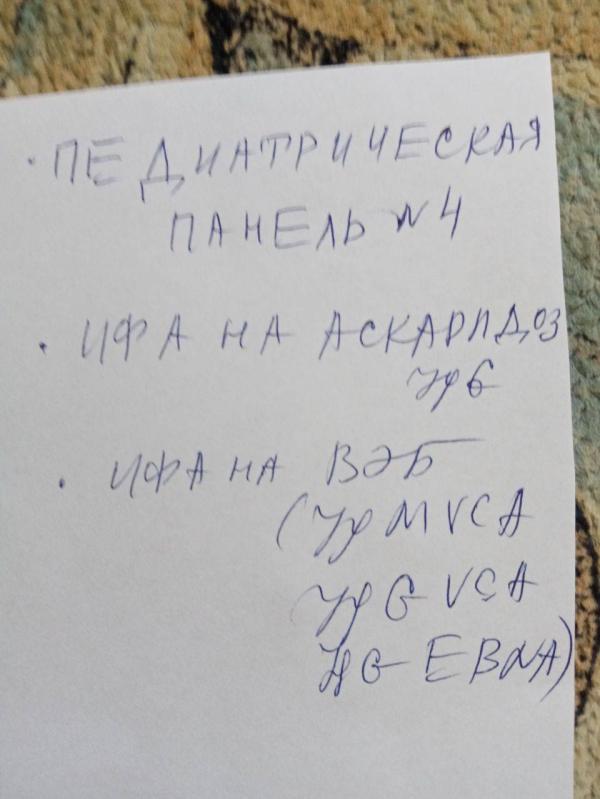 · ПЕДИАТРИЧЕСКАЯ
ПАНЕЛЬ N4
· ИФА НА АСКАРИДОЗ
Ig G
· ИФА НА ВЭБ
(Ig M VCA
Ig G VCA
Ig G EBNA)